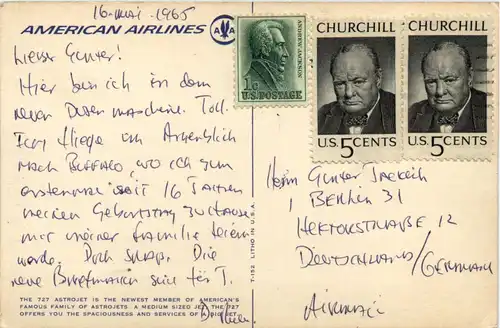 16. Mai 1965
AMERICAN AIRLINES
AA
Lieber Günter!
Hier bin ich in dem
neuen Düsenmaschine. Toll.
Ich fliege im Augenblick
nach BUFFALO, wo ich zum
erstenmal seit 16 Jahren
meinen Geburtstag zu Hause
mit meiner Familie feiern
werde. Doch . Die
neue Briefmarken sind für T.
THE 727 ASTROJET IS THE NEWEST MEMBER OF AMERICAN'S
FAMOUS FAMILY OF ASTROJETS. A MEDIUM SIZED JET, THE 727
OFFERS YOU THE SPACIOUSNESS AND SERVICES OF A BIG JET.
T-152 LITHO IN U.S.A.
ANDREW JACKSON
1c
U.S. POSTAGE
CHURCHILL
U.S. 5 CENTS
CHURCHILL
U.S. 5 CENTS
Herrn Günter
1 Berlin 31
HEKTORSTRAßE 12
DEUTSCHLAND/GERMANY
Airmail